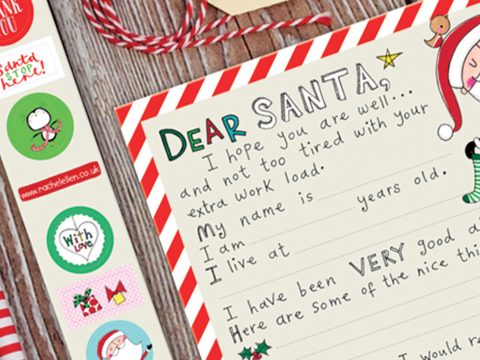 THANK
YOU
Santa
STOP
here!
www.rachelellen.co.uk
With
LOVE
DEAR SANTA,
I hope you are well...
and not too tired with your
extra work load.
My name is
I am years old.
I live at
I have been VERY good
Here are some of the nice
I would